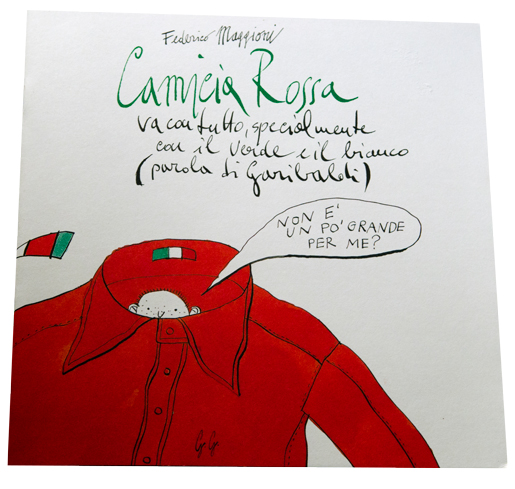 Federico Maggioni
Camicia Rossa
va con tutto, specialmente
con il verde e il bianco
(parola di Garibaldi)
NON E'
UN PO' GRANDE
PER ME?